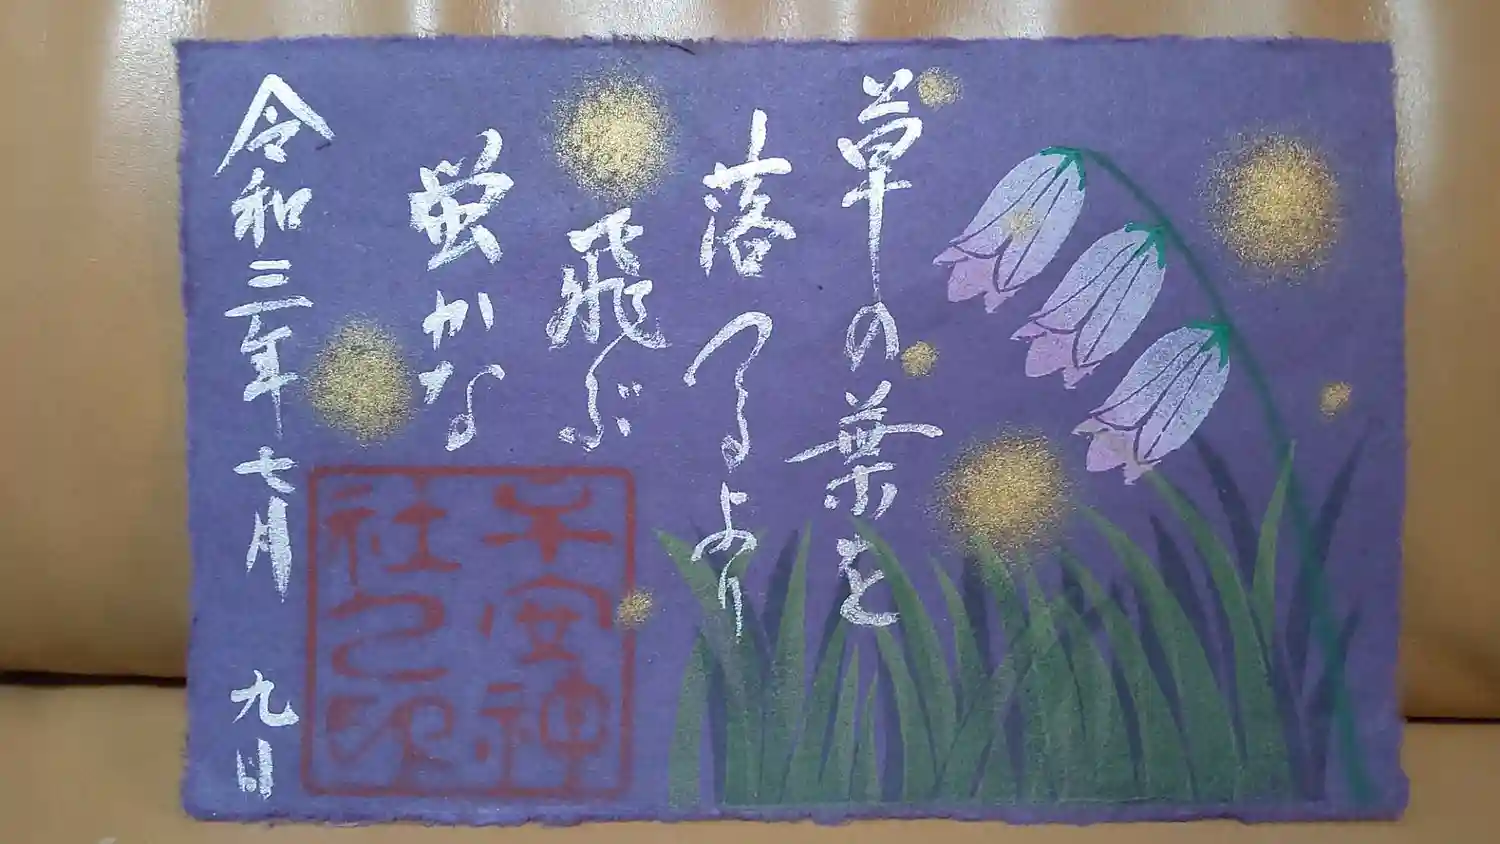 草の葉を
落つるより
飛ぶ
蛍かな
令和三年七月 九日
子安神
社之印